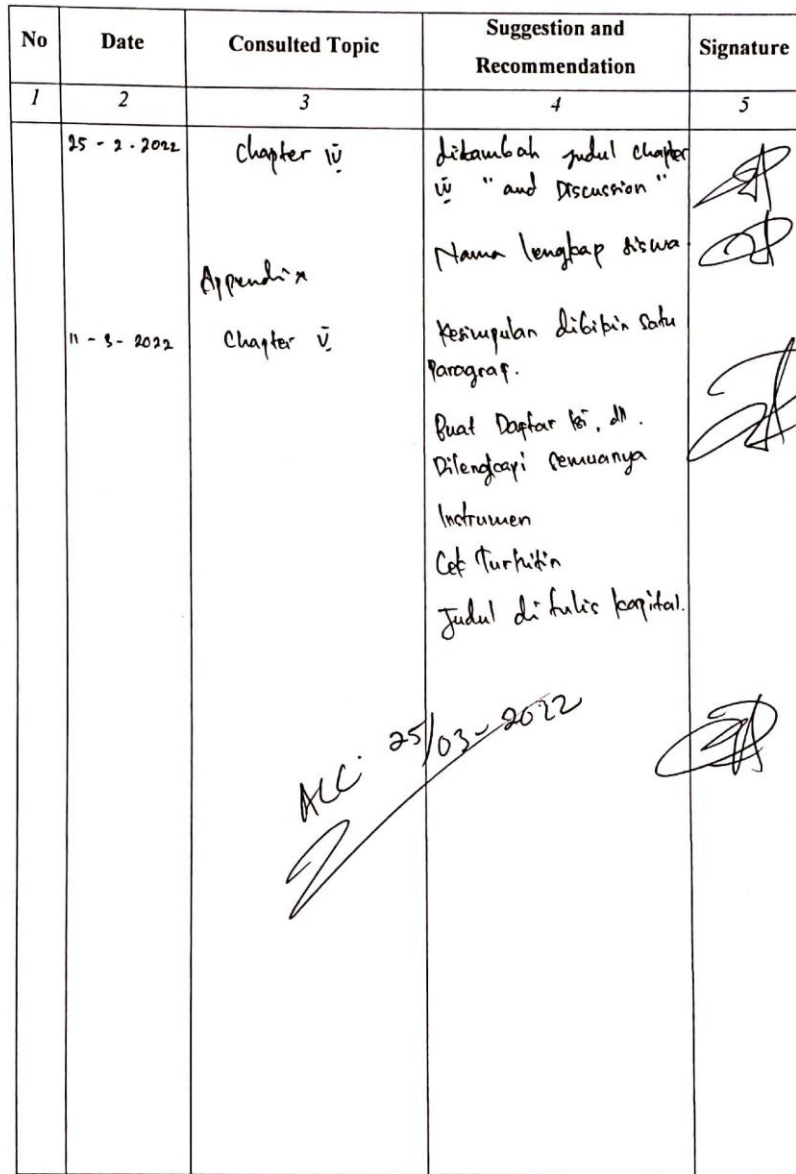 No Date Consulted Topic Suggestion and Recommendation Signature
1 2 3 4 5
25 - 2 - 2022 Chapter IV ditambah judul chapter
IV " and Discussion "
Nama lengkap siswa
Appendix
11 - 3 - 2022 Chapter V Kesimpulan dibikin satu
paragraf.
Buat Daftar Isi, dll.
Dilengkapi semuanya
Instrumen
Cek Turnitin
Judul di tulis kapital.
ACC 25/03-2022